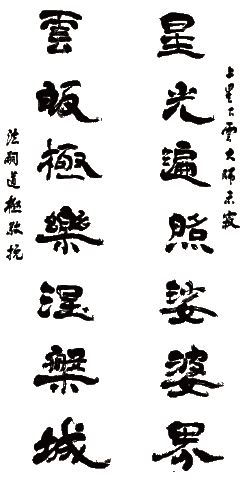 上星下雲大師示寂
星光遍照娑婆界
雲皈極樂涅槃城
法嗣道極敬挽